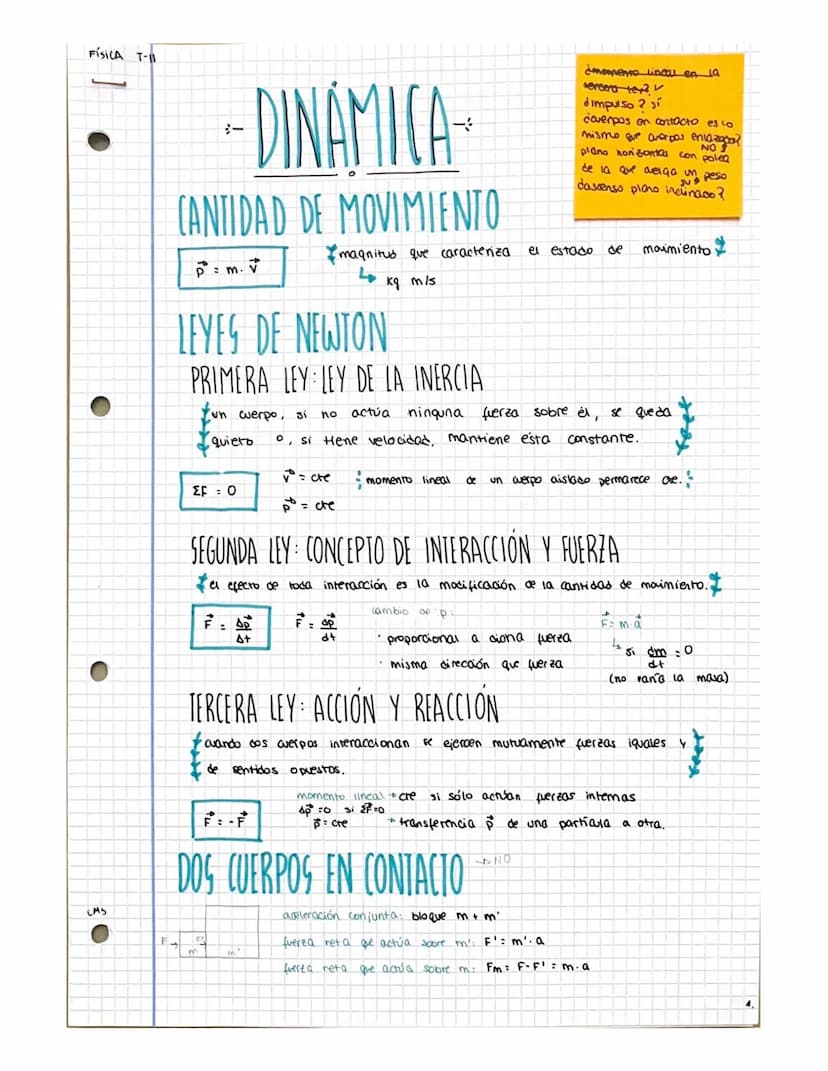 FÍSICA T-11
¿momento lineal en la
tercera ley? ✓
¿impulso? sí
¿cuerpos en contacto es lo
mismo que cuerpos enlazados?
NO
plano horizontal con polea
de la que cuelga un peso
sí
¿ascenso plano inclinado?
DINÁMICA
CANTIDAD DE MOVIMIENTO
p⃗ = m · v⃗
magnitud que caracteriza el estado de movimiento
↳ kg m/s
LEYES DE NEWTON
PRIMERA LEY: LEY DE LA INERCIA
un cuerpo, si no actúa ninguna fuerza sobre él, se queda
quieto o, si tiene velocidad, mantiene ésta constante.
ΣF = 0
v⃗ = cte
momento lineal de un cuerpo aislado permanece cte.
p⃗ = cte
SEGUNDA LEY: CONCEPTO DE INTERACCIÓN Y FUERZA
el efecto de toda interacción es la modificación de la cantidad de movimiento.
F⃗ = Δp⃗/Δt
F⃗ = dp⃗/dt
cambio de p:
· proporcional a dicha fuerza
· misma dirección que fuerza
F⃗ = m·a⃗
↳ si dm/dt = 0
(no varía la masa)
TERCERA LEY: ACCIÓN Y REACCIÓN
cuando dos cuerpos interaccionan se ejercen mutuamente fuerzas iguales y
de sentidos opuestos.
F⃗ = -F⃗
momento lineal → cte si sólo actúan fuerzas internas
Δp⃗ = 0 si ΣF⃗ = 0
p⃗ = cte
→ transferencia p⃗ de una partícula a otra.
DOS CUERPOS EN CONTACTO → NO
LMS
F →
F'
m
m'
aceleración conjunta: bloque m + m'
fuerza neta que actúa sobre m': F' = m'· a
fuerza neta que actúa sobre m: Fm = F - F' = m · a
1.